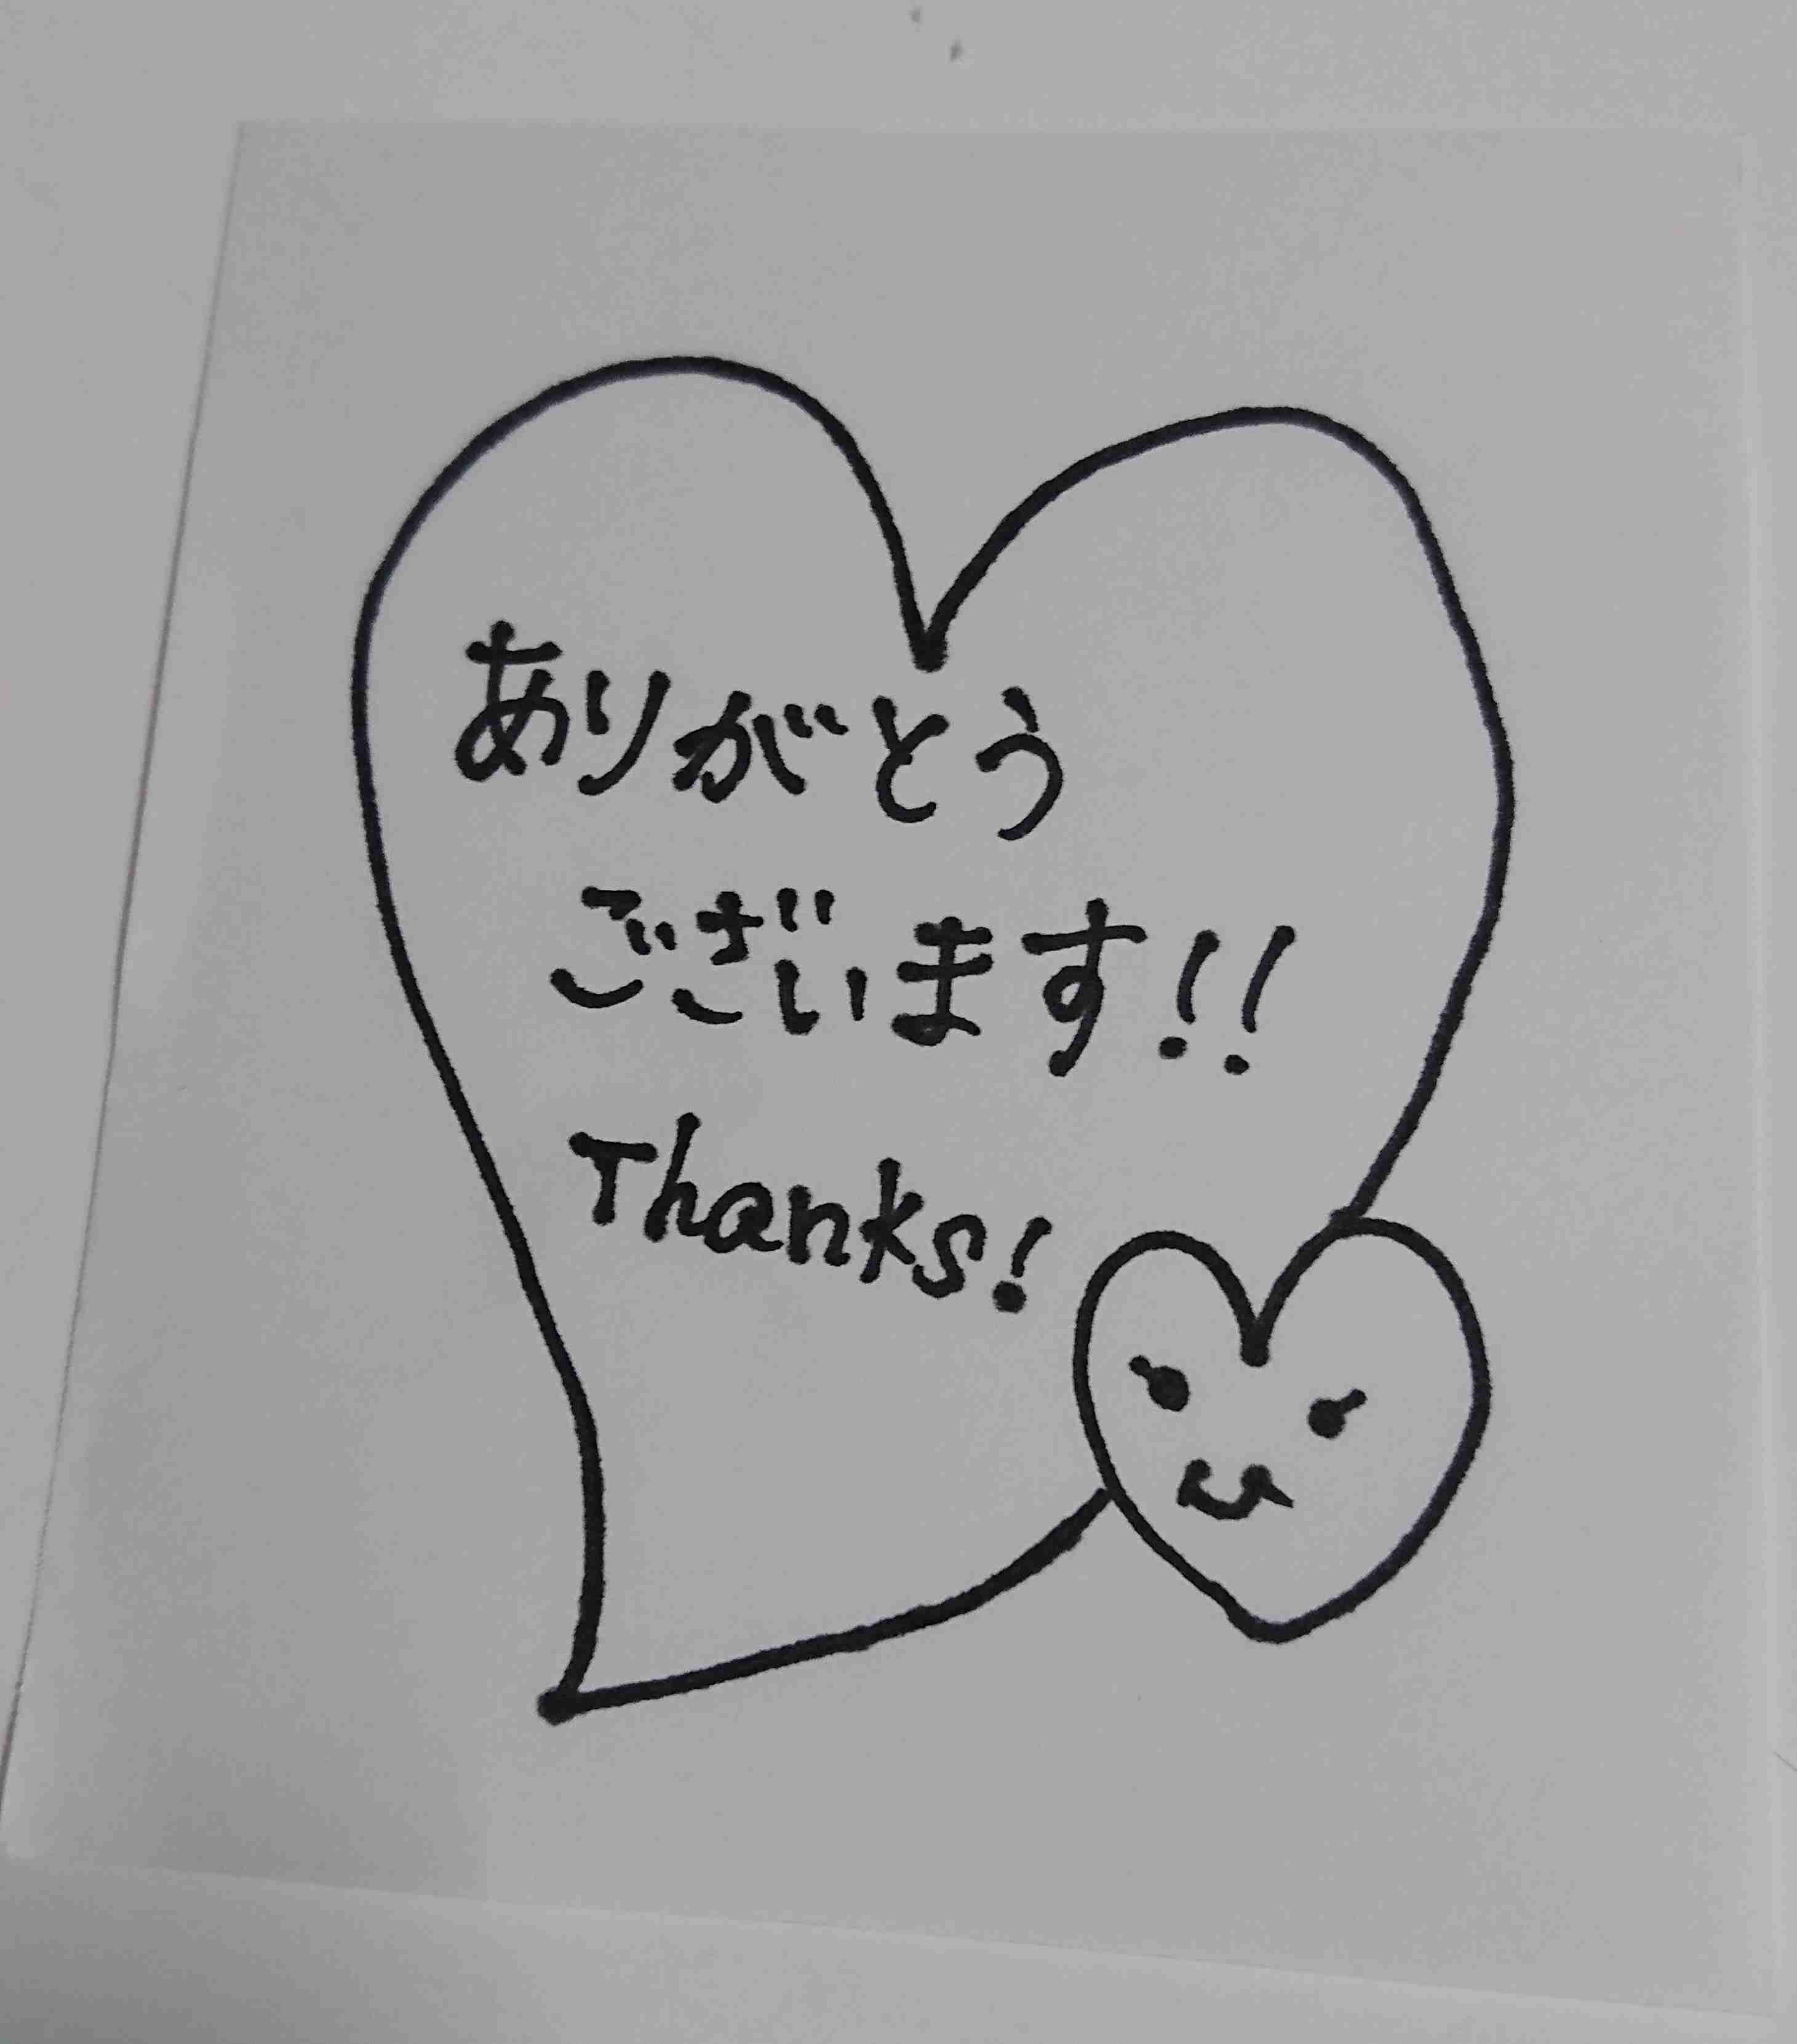 ありがとう
ございます!!
Thanks!